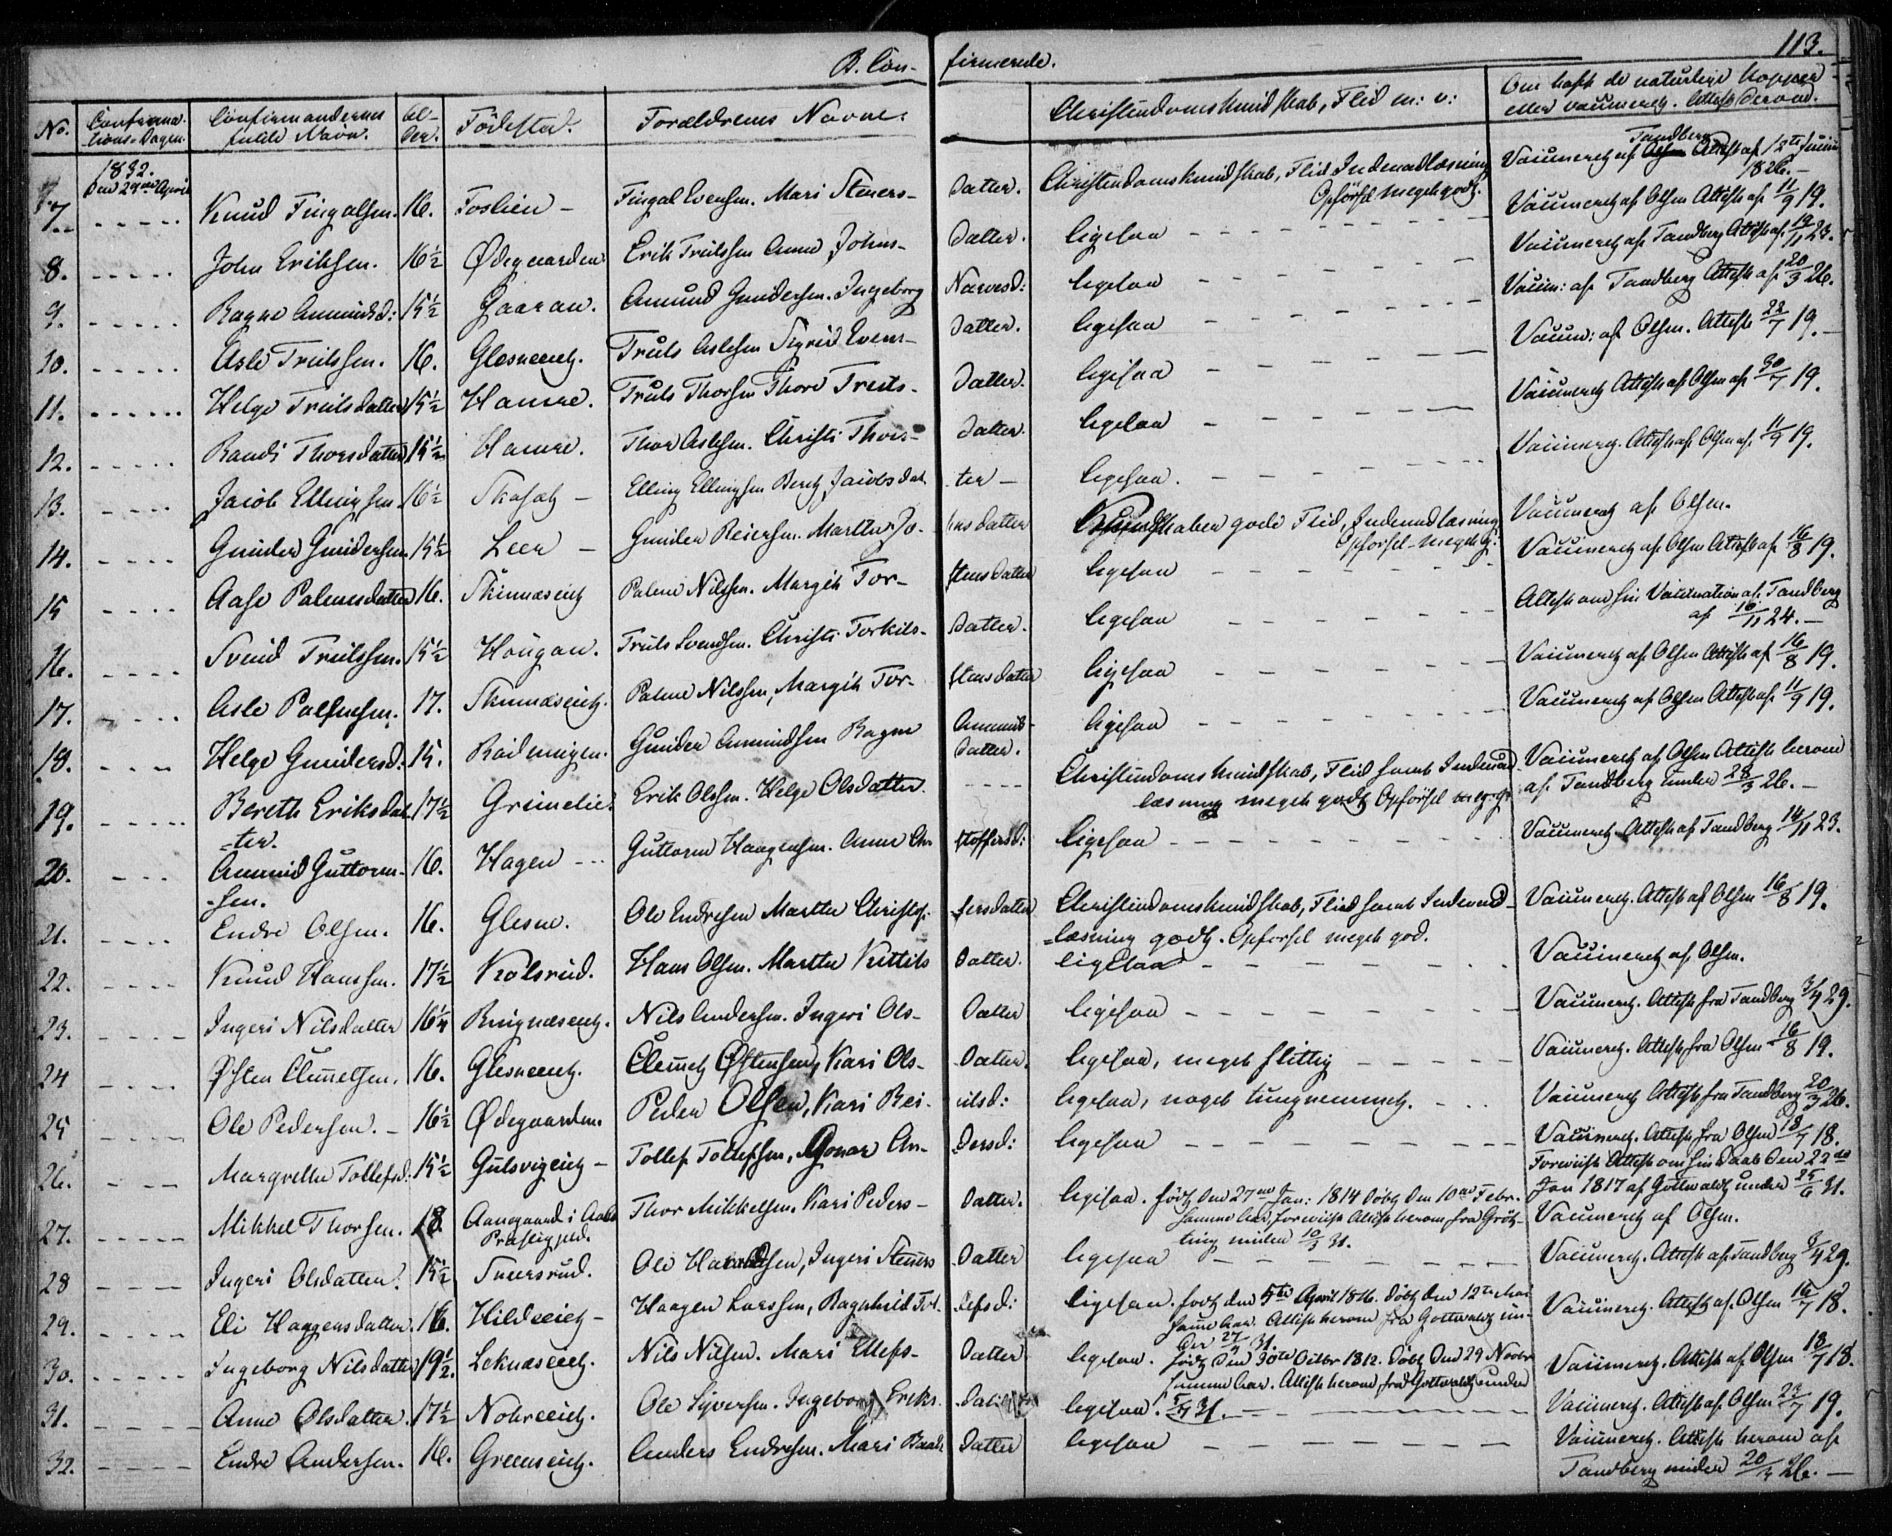 113.
B. Con- firmerede.
No. Confirma- tions-Dagen. Confirmandernes fulde Navn. Al- der. Födested. Forældrenes Navne. Christendomskundskab, Flid m: v: Om havt de naturlige Kopper eller vaccineret. Attest derom.
1832. den 29de April
7. Knud Fingalsen. 16. Foslien - Fingal Evensen. Mari Steners- Datter. Christendomskundskab, Flid Indenadlæsning Opførsel meget godt. Vaccineret af Tandberg Attest af 12te Junii 1826.-
8. John Eriksen. 16½ Ødegaarden Erik Trulssen Anne Johns- Datter. ligesaa Vaccineret af Olsen Attest af 11/9 19.
9. Ragne Amundsd: 15½ Gaaran. Amund Gundersen. Ingeborg Narvesd: ligesaa Vaccineret af Tandberg Attest af 19/11 23.
10. Asle Trulssen. 16. Glesneeiet. Truls Aslesen Sigrid Evens- Datter. ligesaa Vaccin: af Tandberg Attest af 20/3 26.
11. Helge Trulsdatter 15½ Hamre. Truls Thorsen Thore Truls- Datter. ligesaa Vaccin: af Olsen. Attest 22/7 19.-
12. Randi Thorsdatter 15½ Hamre. Thor Aslesen. Christi Thors- Datter. ligesaa Vaccineret Attest af Olsen af 30/7 19.
13. Jacob Ellingsen 16½ - Elling Ellingsen Beret Jacobsdat- ter - ligesaa. Vaccineret. Attest af Olsen af 11/9 19.
14. Gunder Gundersen 15½ Leer - Gunder Reiersen. Marthe Jo- hnsdatter Kundskaber gode Flid, Indenadlæsning Opførsel meget G: Vaccineret af Olsen.
15 Aase Palmesdatter 16. Skinnæseiet Palme Nilssen. Margit Tor- stensdatter ligesaa Vaccineret af Olsen Attest af 16/8 19.
16. Svend Trulssen. 15½ Haugan. Truls Svendsen. Christi Torkils- Datter. ligesaa Attest om sin Vaccination af Tandberg af 16/11 24.-
17. Asle Palmesen. 17. Skinnæseiet. Palme Nilssen, Margit Tor- stensdatter ligesaa Vaccineret af Olsen Attest af 16/8 19.
18. Helge Gundersd: 15. Gunder Amundsen Ragne Amunds- Datter. ligesaa Vaccineret af Olsen Attest af 11/9 19.
19. Bereth Eriksdat- =ter. 17½ Grimelie. Erik Olssen. Helge Olsdatter. Christendomskundskab, Flid samt Indenad- læsning meget godt Opførsel Vaccineret af Olsen Attest herom af Tandberg under 28/3 26.-
20. Amund Guttorm- =sen. 16. Hagen Guttorm Haagensen. Anne Chri- stoffersd: ligesaa Vaccineret Attest af Tandberg 14/11 23.
21. Endre Olsen. 16. Glesne. Ole Endresen Marthe Christof- fersdatter Christendomskundskab, Flid samt Indenad- =læsning godt. Opførsel meget god. Vaccineret. Attest af Olsen 16/8 19.
22. Knud Hanssen. 17½ Kolsrud. Hans Olsen. Marthe Kittils Datter. ligesaa Vaccineret af Olsen.
23. Ingeri Nilsdatter 16¼ Ringnæseiet. Nils Andersen. Ingeri Ols- Datter ligesaa Vaccineret. Attest fra Tandberg 3/4 29.
24 Østen Clemetsen. 16. Glesneeiet. Clemet Østensen, Kari Ols- Datter. ligesaa, meget flittig Vaccineret. Attest fra Olsen 16/8 19.
25 Ole Pedersen. - 16½ Ødegaarden. Peder Olsen, Kari Rei- ersd: ligesaa, noget tungnemmet. Vaccineret Attest fra Tandberg 20/3 26.
26. Margrethe Tollefsd: 15½ Gulsvigeiet - Tollef Tollefsen, Gonor An- dersd: ligesaa Vaccineret. Attest fra Olsen 18/7 18.
27. Mikkel Thorsen. 18 Aangaard i Aals Præstegjeld. Thor Mikkelsen. Kari Peders- Datter. ligesaa. født den 27de Jan: 1814 døbt den 10de Febr. samme Aar, foreviist Attest herom, fra Grøt- ting under 10/3 31. Foreviist Attest om sin Daab den 22de Jan 1817 af Gottwaldt under 25/6 31. Vaccineret af Olsen.
28 Ingeri Olsdatter. 15½ Sneersrud. Ole Haraldsen, Ingeri Steners Datter ligesaa Vaccineret. Attest af Tandberg 3/4 29.
29. Eli Haagensdatter. 16. Hildeeiet - Haagen Larssen, Ragnhild Tol- lefsd: ligesaa. født den 5te April 1816. døbt den 12te Mai samme Aar. Attest herom fra Gottwaldt un- der 27/4 31. Vaccineret. Attest af Olsen 16/7 18.
30. Ingeborg Nilsdatter 19½. Leknæseiet. Nils Nilsen. Mari Ellefs- Datter ligesaa. født den 30te Octbr 1812. døbt den 29 Novbr samme Aar. Attest herom fra Gottwaldt under 31. Vaccineret. Attest af Olsen 18/7 18.
31. Anne Olsdatter. 17½ Nohreeiet. Ole Syversen. Ingeborg Eriks. Datter ligesaa. Vaccineret. Attest af Olsen 22/7 19.
32. Endre Andersen. 16. Greenseiet. Anders Endresen. Mari Baads Datter ligesaa Vaccineret. Attest herom af Tandberg under 20/3 26.-